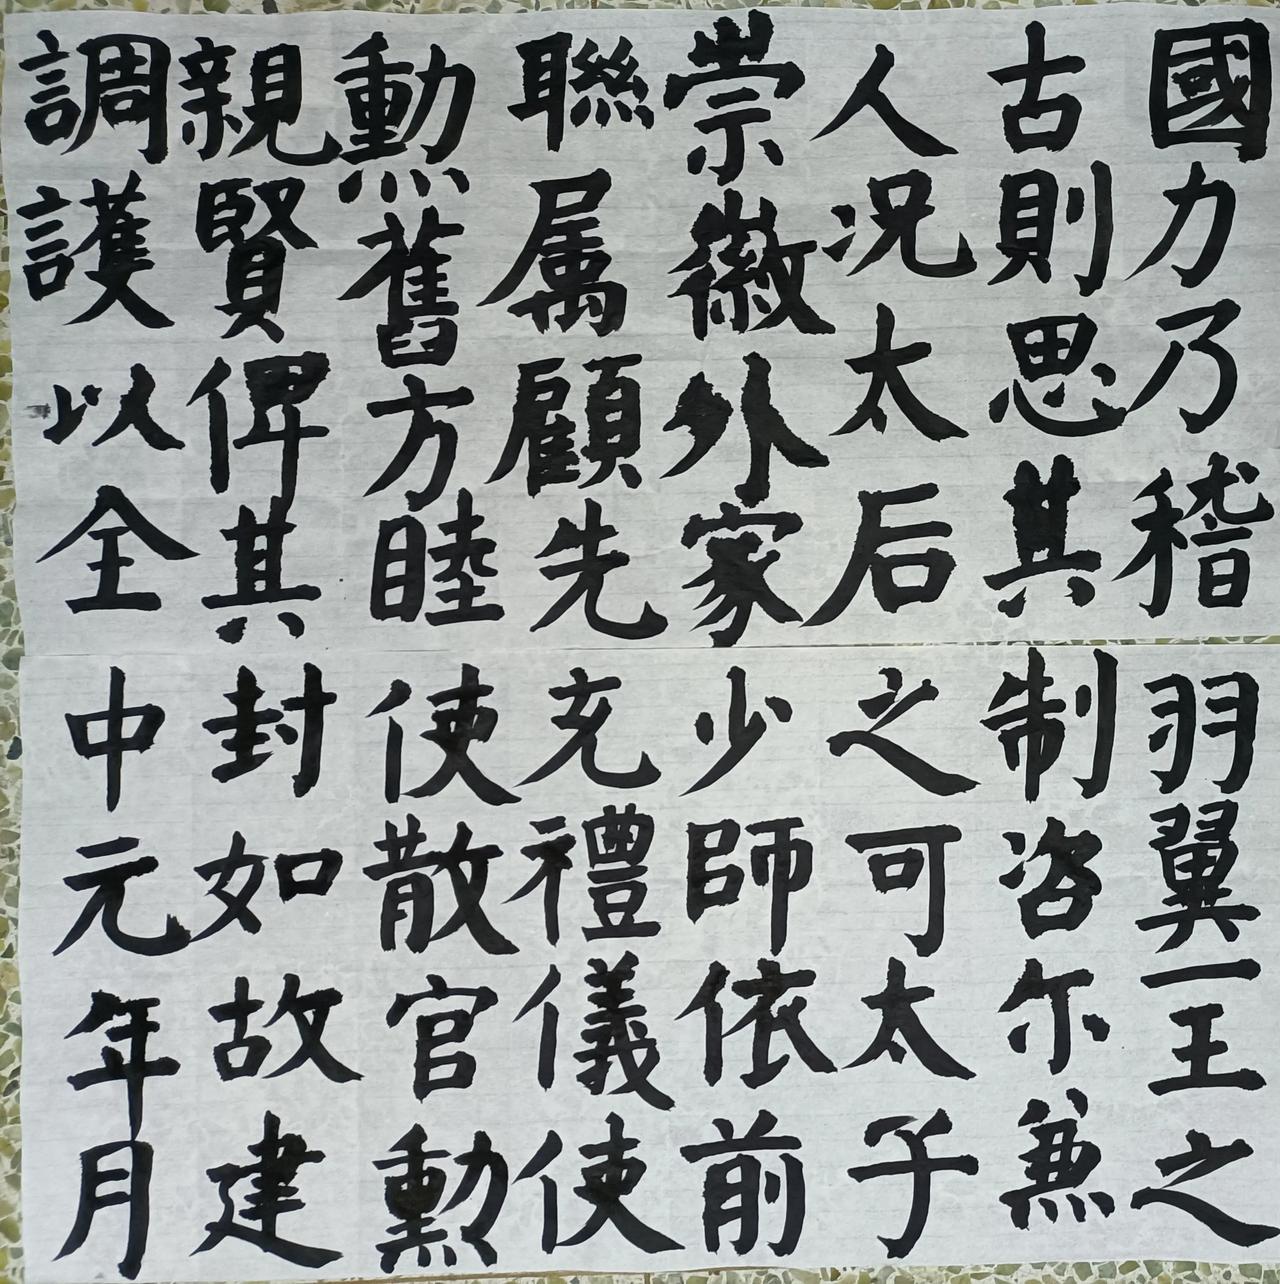 國力乃稽
古則思其
人况太后
崇徽外家
聯属顧先
勲舊方睦
親賢俾其
調護以全
羽翼一王之
制咨尔兼
之可太子
少師依前
充禮儀使
使散官勲
封如故建
中元年月